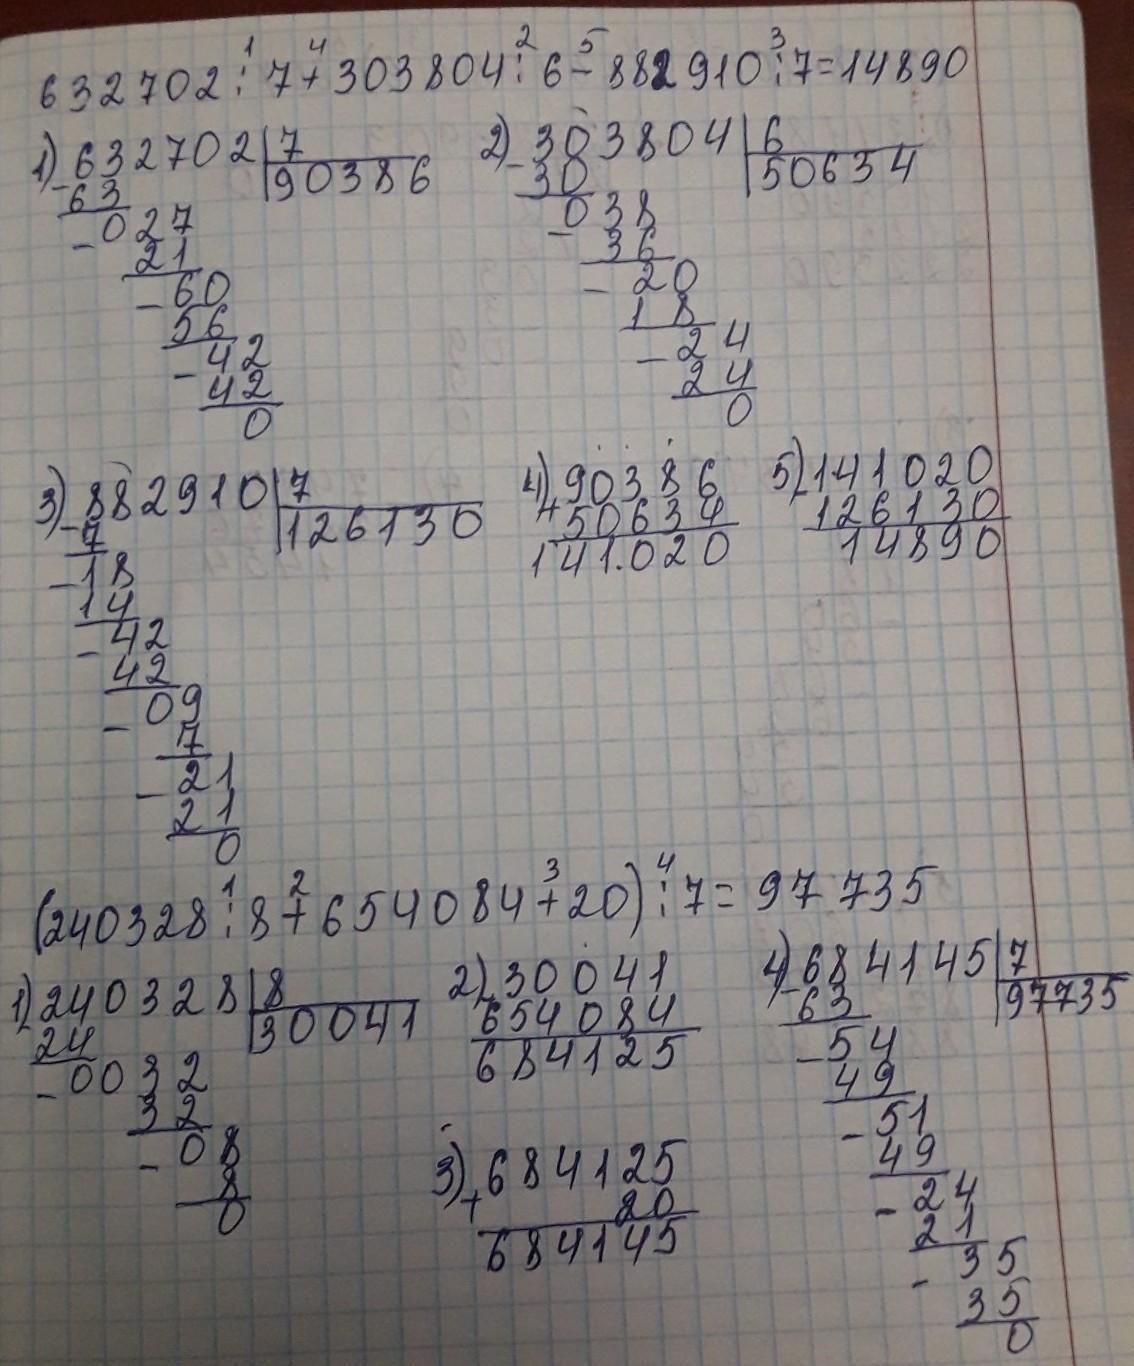 632702 : 7 + 303804 : 6 - 882910 : 7 = 14890
1 4 2 5 3
1) 632702 | 7
- 63 | 90386
- 027
21
- 60
56
- 42
42
0
2) 303804 | 6
- 30 | 50634
- 038
36
- 20
18
- 24
24
0
3) 882910 | 7
- 7 | 126130
- 18
14
- 42
42
- 09
7
- 21
21
0
4) 90386
+ 50634
141.020
5) 141020
- 126130
14890
(240328 : 8 + 654084 + 20) : 7 = 97 735
1 2 3 4
1) 240328 | 8
24 | 30041
- 0032
32
- 08
8
0
2) 30041
654084
684125
3) 684125
+ 20
684145
4) 684145 | 7
- 63 | 97735
- 54
49
- 51
49
- 24
21
- 35
35
0